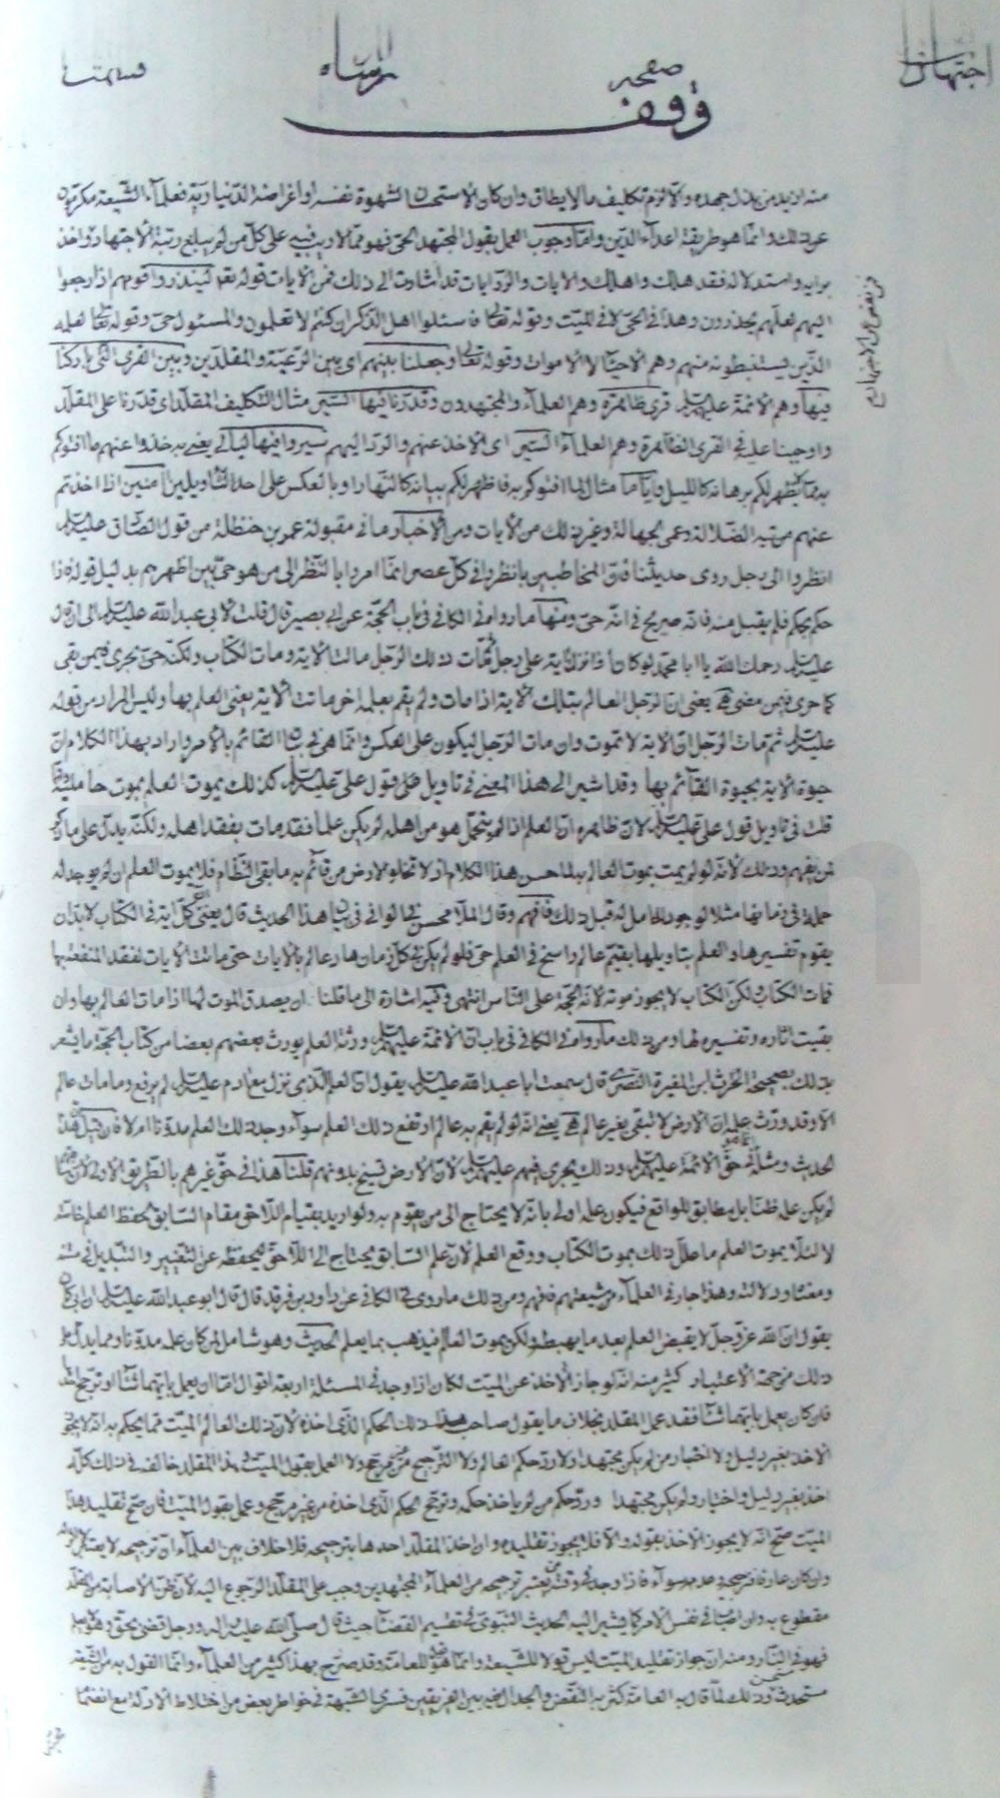 صفحه
وقف
منه ازيد من بذل جهده والا لزم تكليف ما لا يطاق وان كان الاستحسان لشهوة نفسه او اغراضه الدنياوية فعلماء الشيعة مكرمون
عن ذلك وانما هو طريقة اعداء الدين واما وجوب العمل بقول المجتهد الحي فهو مما لا ريب فيه على كل من لم يبلغ رتبة الاجتهاد واخذ
برايه واستدلاله فقد هلك واهلك والايات والروايات قد اشارت الى ذلك فمن الايات قوله تعالى لينذروا قومهم اذا رجعوا
اليهم لعلهم يحذرون وهذا في الحي لا في الميت وقوله تعالى فاسئلوا اهل الذكر ان كنتم لا تعلمون والمسئول حي وقوله تعالى لعلمه
الذين يستنبطونه منهم وهم الاحياء لا الاموات وقوله تعالى وجعلنا بينهم اي بين الرعية والمقلدين وبين القرى التي باركنا
فيها وهم الائمة عليهم السلام قرى ظاهرة وهم العلماء والمجتهدون وقدرنا فيها السير مثال التكليف المقلد اي قدرنا على المقلد
واوجبنا عليه في القرى الظاهرة وهم العلماء السير اي الاخذ عنهم والرد اليهم سيروا فيها ليالي يعني به خذوا عنهم ما افتوكم
به مما يظهر لكم برهانه كالليل واياما مثال لما افتوكم به فاظهر لكم بيانه كالنهار او بالعكس على احد التاويلين امنين اذا اخذتم
عنهم من تيه الضلالة وعمى الجهالة وغير ذلك من الايات ومن الاخبار ما في مقبولة عمر بن حنظلة من قول الصادق عليه السلام
انظروا الى رجل روى حديثنا فان المخاطبين بانظروا في كل عصر انما امروا بالنظر الى من هو حي بين اظهرهم بدليل قوله فاذا
حكم بحكم فلم يقبل منه فانه صريح في انه حي ومنها ما رواه في الكافي في باب الحجة عن ابي بصير قال قلت لابي عبد الله عليه السلام الى ان قال
عليه السلام رحمك الله يا ابا محمد لو كان اذا نزلت اية على رجل ثم مات ذلك الرجل ماتت الاية ومات الكتاب ولكنه حي يجري فيمن بقي
كما جرى فيمن مضى هـ يعني ان الرجل العالم بتلك الاية اذا مات ولم يقم بعلمه اخر ماتت الاية يعني العلم بها وليس المراد من قوله
عليه السلام ثم مات الرجل ان الاية لا تموت وان مات الرجل ليكون على العكس وانما هي بحياة القائم بالامر واراد بهذا الكلام ان
حيوة الاية بحيوة القائم بها وقد اشير الى هذا المعنى في تاويل قول علي عليه السلام كذلك يموت العلم بموت حامليه وقد
قلت في تاويل قول علي عليه السلام لان ظاهره ان العلم اذا لم يتحمل هو من اهله لم يكن علما فقد مات بفقد اهله ولكنه يدل على ما ذكر
لمن يفهم وذلك لانه لو لم يمت بموت العالم به لما حسن هذا الكلام اذ لا تخلو الارض من قائم به ما بقي النظام فلا يموت العلم ان لم يوجد له
حملة في زمانها مثلا لوجود الحامل له قبل ذلك فافهم وقال الملا محسن في الوافي في بيان هذا الحديث قال يعني كل اية في الكتاب لا بد ان
يقوم تفسيرها والعلم بتاويلها بقيم عالم راسخ في العلم حي فلو لم يكن في كل زمان هاد عالم بالايات حي ماتت الايات لفقد المنفعة بها
فمات الكتاب ولكن الكتاب لا يجوز موته لانه الحجة على الناس انتهى وفيه اشارة الى ما قلنا ان يصدق الموت لها اذا مات العالم بها وان
بقيت اثاره وتفسيره لها ومن ذلك ما رواه في الكافي في باب ان الائمة عليهم السلام ورثة العلم يورث بعضهم بعضا من كتاب الحجة ما يشعر
بذلك بصحيح الحرث ابن المغيرة النصري قال سمعت ابا عبد الله عليه السلام يقول ان العلم الذي نزل مع ادم عليه السلام لم يرفع وما مات عالم
الا وقد ورث علمه ان الارض لا تبقى بغير عالم هـ يعني انه لو لم يقم به عالم ارتفع ذلك العلم سواء وجد ذلك العلم مدونا ام لا فان قيل هذا
الحديث ومثله في حق الائمة عليهم السلام وذلك يجري فيهم عليهم السلام لان الارض تسيخ بدونهم قلنا هذا في حق غيرهم بالطريق الاولى لان
لم يكن علمه ظنا بل مطابق للواقع فيكون علمه اولى بانه لا يحتاج الى من يقوم به ولو اريد بقيام اللاحق مقام السابق لحفظ العلم خاصة
لا لئلا يموت العلم ما علل ذلك بموت الكتاب ووقع العلم لان علم السابق يحتاج الى اللاحق ليحفظه عن التغيير والتبديل في متنه
ومعناه ودلالته وهذا جار في العلماء من شيعتهم فافهم ومن ذلك ما روي في الكافي عن داود بن فرقد قال قال ابو عبد الله عليه السلام ان ابي كان
يقول ان الله عز وجل لا يقبض العلم بعد ما يهبطه ولكن يموت العالم فيذهب بما يعلم الحديث وهو شامل لمن كان علمه مدونا ومما يدل على
ذلك من جهة الاعتبار كثير منه انه لو جاز الاخذ عن الميت لكان اذا وجد في المسئلة اربعة اقوال اما ان يعمل بايتهما شاء او ترجح
فان كان يعمل بايتهما شاء فقد عمل المقلد بخلاف ما يقول صاحب ذلك الحكم الذي اخذه لان ذلك العالم الميت مما يحكم به انه لا يجوز
الاخذ بغير دليل ولا اختيار من لم يكن مجتهدا ولا رد حكم العالم ولا الترجيح من غير مرجح ولا العمل بقول الميت وهذا المقلد خالفه في ذلك كله
اخذ بغير دليل واختيار ولم يكن مجتهدا ورد حكم من لم ياخذ حكمه وترجح الحكم الذي اخذه من غير مرجح وعمل بقول الميت فان صح تقليد هذا
الميت صح انه لا يجوز الاخذ بقوله والا فلا يجوز تقليده وان اخذ المقلد احدها بترجيحه فلا خلاف بين العلماء ان ترجيحه لا يعتبر
وان كان عارفا فترجيحه وعدمه سواء فاذا وجد في وقته من يعتبر ترجيحه من العلماء المجتهدين وجب على المقلد الرجوع اليه لان ظن الاصابة من المقلد
مقطوع به وان اصاب في نفس الامر كما يشير اليه الحديث النبوي في تقسيم القضاة حيث قال صلى الله عليه واله ورجل قضى بحق وهو لا يعلم
فهو في النار ومنه ان جواز تقليد الميت ليس قولا للشيعة وانما هو للعامة وقد صرح بهذا كثير من العلماء وانما القول به من الشيعة
مستحدث وذلك لما قال به العامة كثر به النقض والجدال فيه بين الفريقين فسرى الشبهة في خواطر بعض من اختلاط الادلة مع انضمام